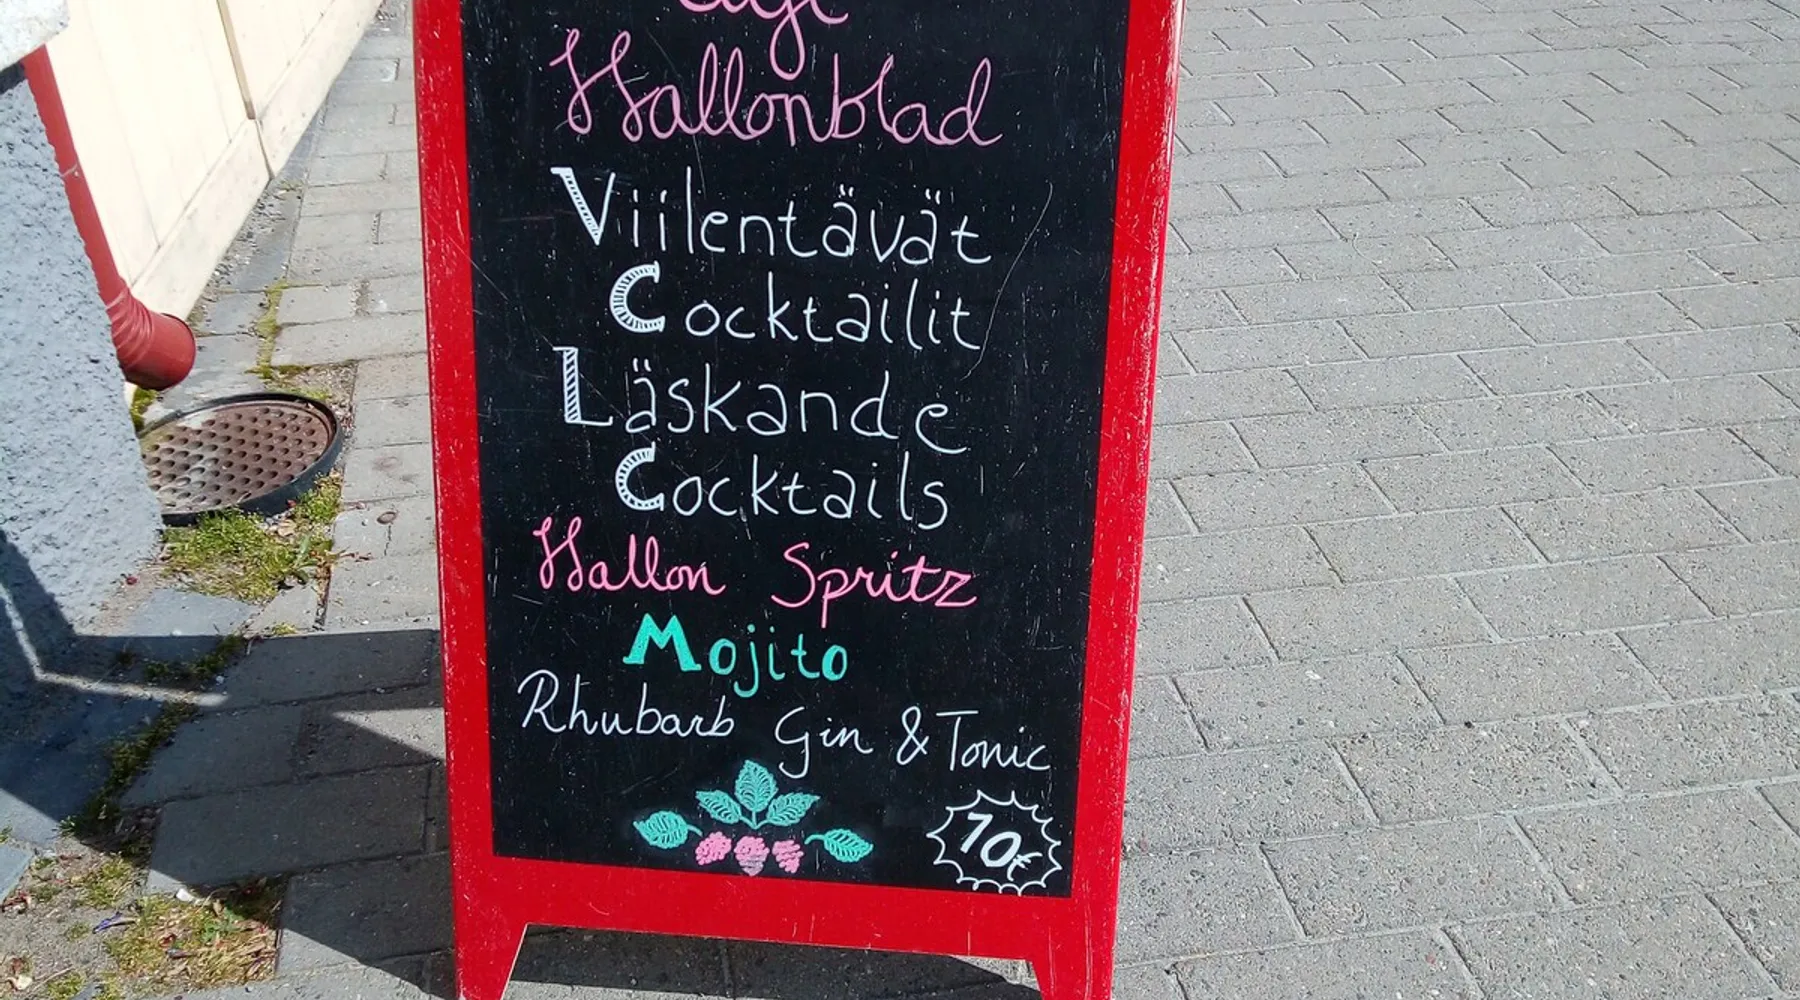 Hallonblad
Viilentävät
Cocktailit
Läskande
Cocktails
Hallon Spritz
Mojito
Rhubarb Gin & Tonic
10€